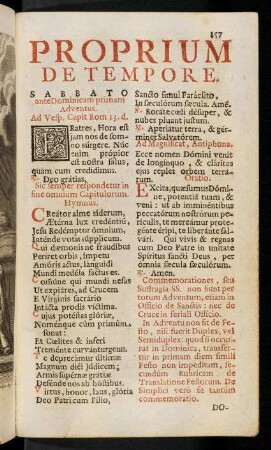 157
PROPRIUM
DE TEMPORE.
SABBATO
ante Dominicam primam
Adventus.
Ad Vesp. Capit Rom 13. d.
FRatres, Hora est
jam nos de som-
no surgere. Nūc
enim propior
est nostra salus,
quam cum credidimus.
℟. Deo grátias.
Sic semper respondetur in
fine omnium Capitulorum.
Hymnus.
CReátor alme síderum,
Ætérna lux credéntiū,
Jesu Redémptor ómnium,
Inténde votis súpplicum.
Qui dæmonis ne fráudibus
Períret orbis, ímpetu
Amóris actus, lánguidi
Mundi medéla factus es.
Commúne qui mundi nefas
Ut expiáres, ad Crucem
E Vírginis sacrário
Intácta prodis víctima.
Cujus potéstas glóriæ,
Noménque cùm primùm
sonat:
Et Cǽlites & ínferi
Treménte curvántur genu.
Te deprecámur últimæ
Magnum diéi Júdicem;
Armis supérnæ grátiæ
Defénde nos ab hóstibus.
Virtus, honor, laus, glória
Deo Patri cum Fílio,
Sancto simul Paráclito,
In sæculórum sæcula. Amē.
℣. Roráte cœli désuper, &
nubes pluant justum.
℟. Aperiátur terra, & gér-
minet Salvatórem.
Ad Magnificat, Antiphona.
Ecce nomen Dómini venit
de longínquo, & cláritas
ejus replet orbem terra-
rum.
Oratio.
EXcita, quæsumus Dómi-
ne, poténtiā tuam, & 
veni: ut ab imminéntibus
peccatórum nostrórum pe-
rículis, te mereámur prote-
génte éripi, te liberánte sal-
vári. Qui vivis & regnas
cum Deo Patre in unitáte
Spíritus sancti Deus, per
ómnia sæcula sæculórum.
℟. Amen.
Commemorationes, seu
Suffragia SS. non fiunt per
totum Adventum, etiam in
Officio de Sanctis: nec de
Cruce in feriali Officio.
In Adventu non fit de Fe-
sto, nisi fuerit Duplex, vel
Semiduplex: quod si occur-
rat in Dominica, transfer-
tur in primam diem simili
Festo non impeditam, se-
cundum Rubricam de
Translatione Festorum. De
Simplici verò fit tantùm
commemoratio.
DO-